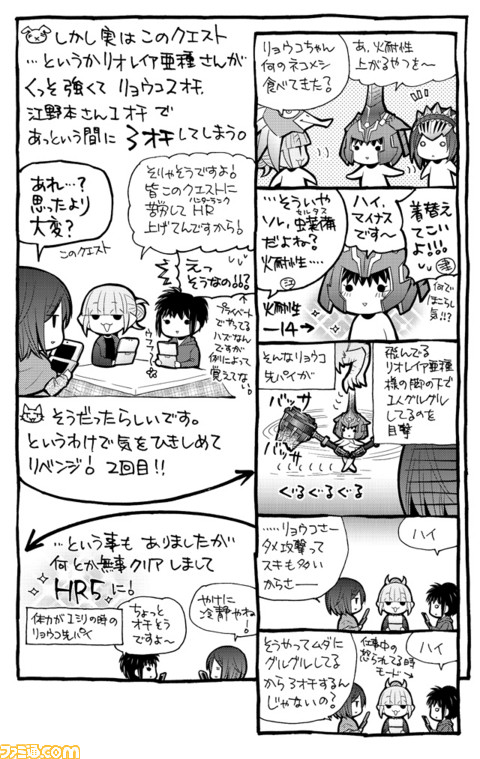 しかし実はこのクエスト
…というかリオレイア亜種さんが
くっそ強くて リョウコ2オチ、
江野本さん1オチ で
あっという間に 3オチしてしまう。
あれ…?
思ったより
大変?
このクエスト
そりゃそうですよ!
皆このクエストに
苦労してHR
ハンターランク
上げてんですから!
えっ
そうなの!!?
プライベート
でやってる
ハズなん
ですが
例によって
覚えてな…
ウフフ…
そうだったらしいです。
というわけで気をひきしめて
リベンジ! 2回目!!
…という事も ありましたが
何とか無事クリア しまして
HR5に!
体力がミリの時の
リョウコ先パイ
ちょっと
オチそう
ですよ~
やけに
冷静やね!
リョウコちゃん
何のネコメシ
食べてきた?
あ、火耐性
上がるやつを~
…そういや
ソレ、虫装備
セルタス
だよね?
火耐性…
ハイ、
マイナス
です~
着替え
てこい
よ!!!
何で
ほこらし
気!!?
火耐性
-14→
そんなリョウコ
先パイが
飛んでる
リオレイア亜種
様の脚の下で
1人グルグル
してるのを
目撃
バッサ
バッサ
ぐるぐるぐる
……リョウコさー
タメ攻撃って
スキも多い
からさー
ハイ
そうやってムダに
グルグルしてる
から3オチするん
じゃないの?
仕事中の
怒られてる時
モード→
ハイ
ファミ通.com